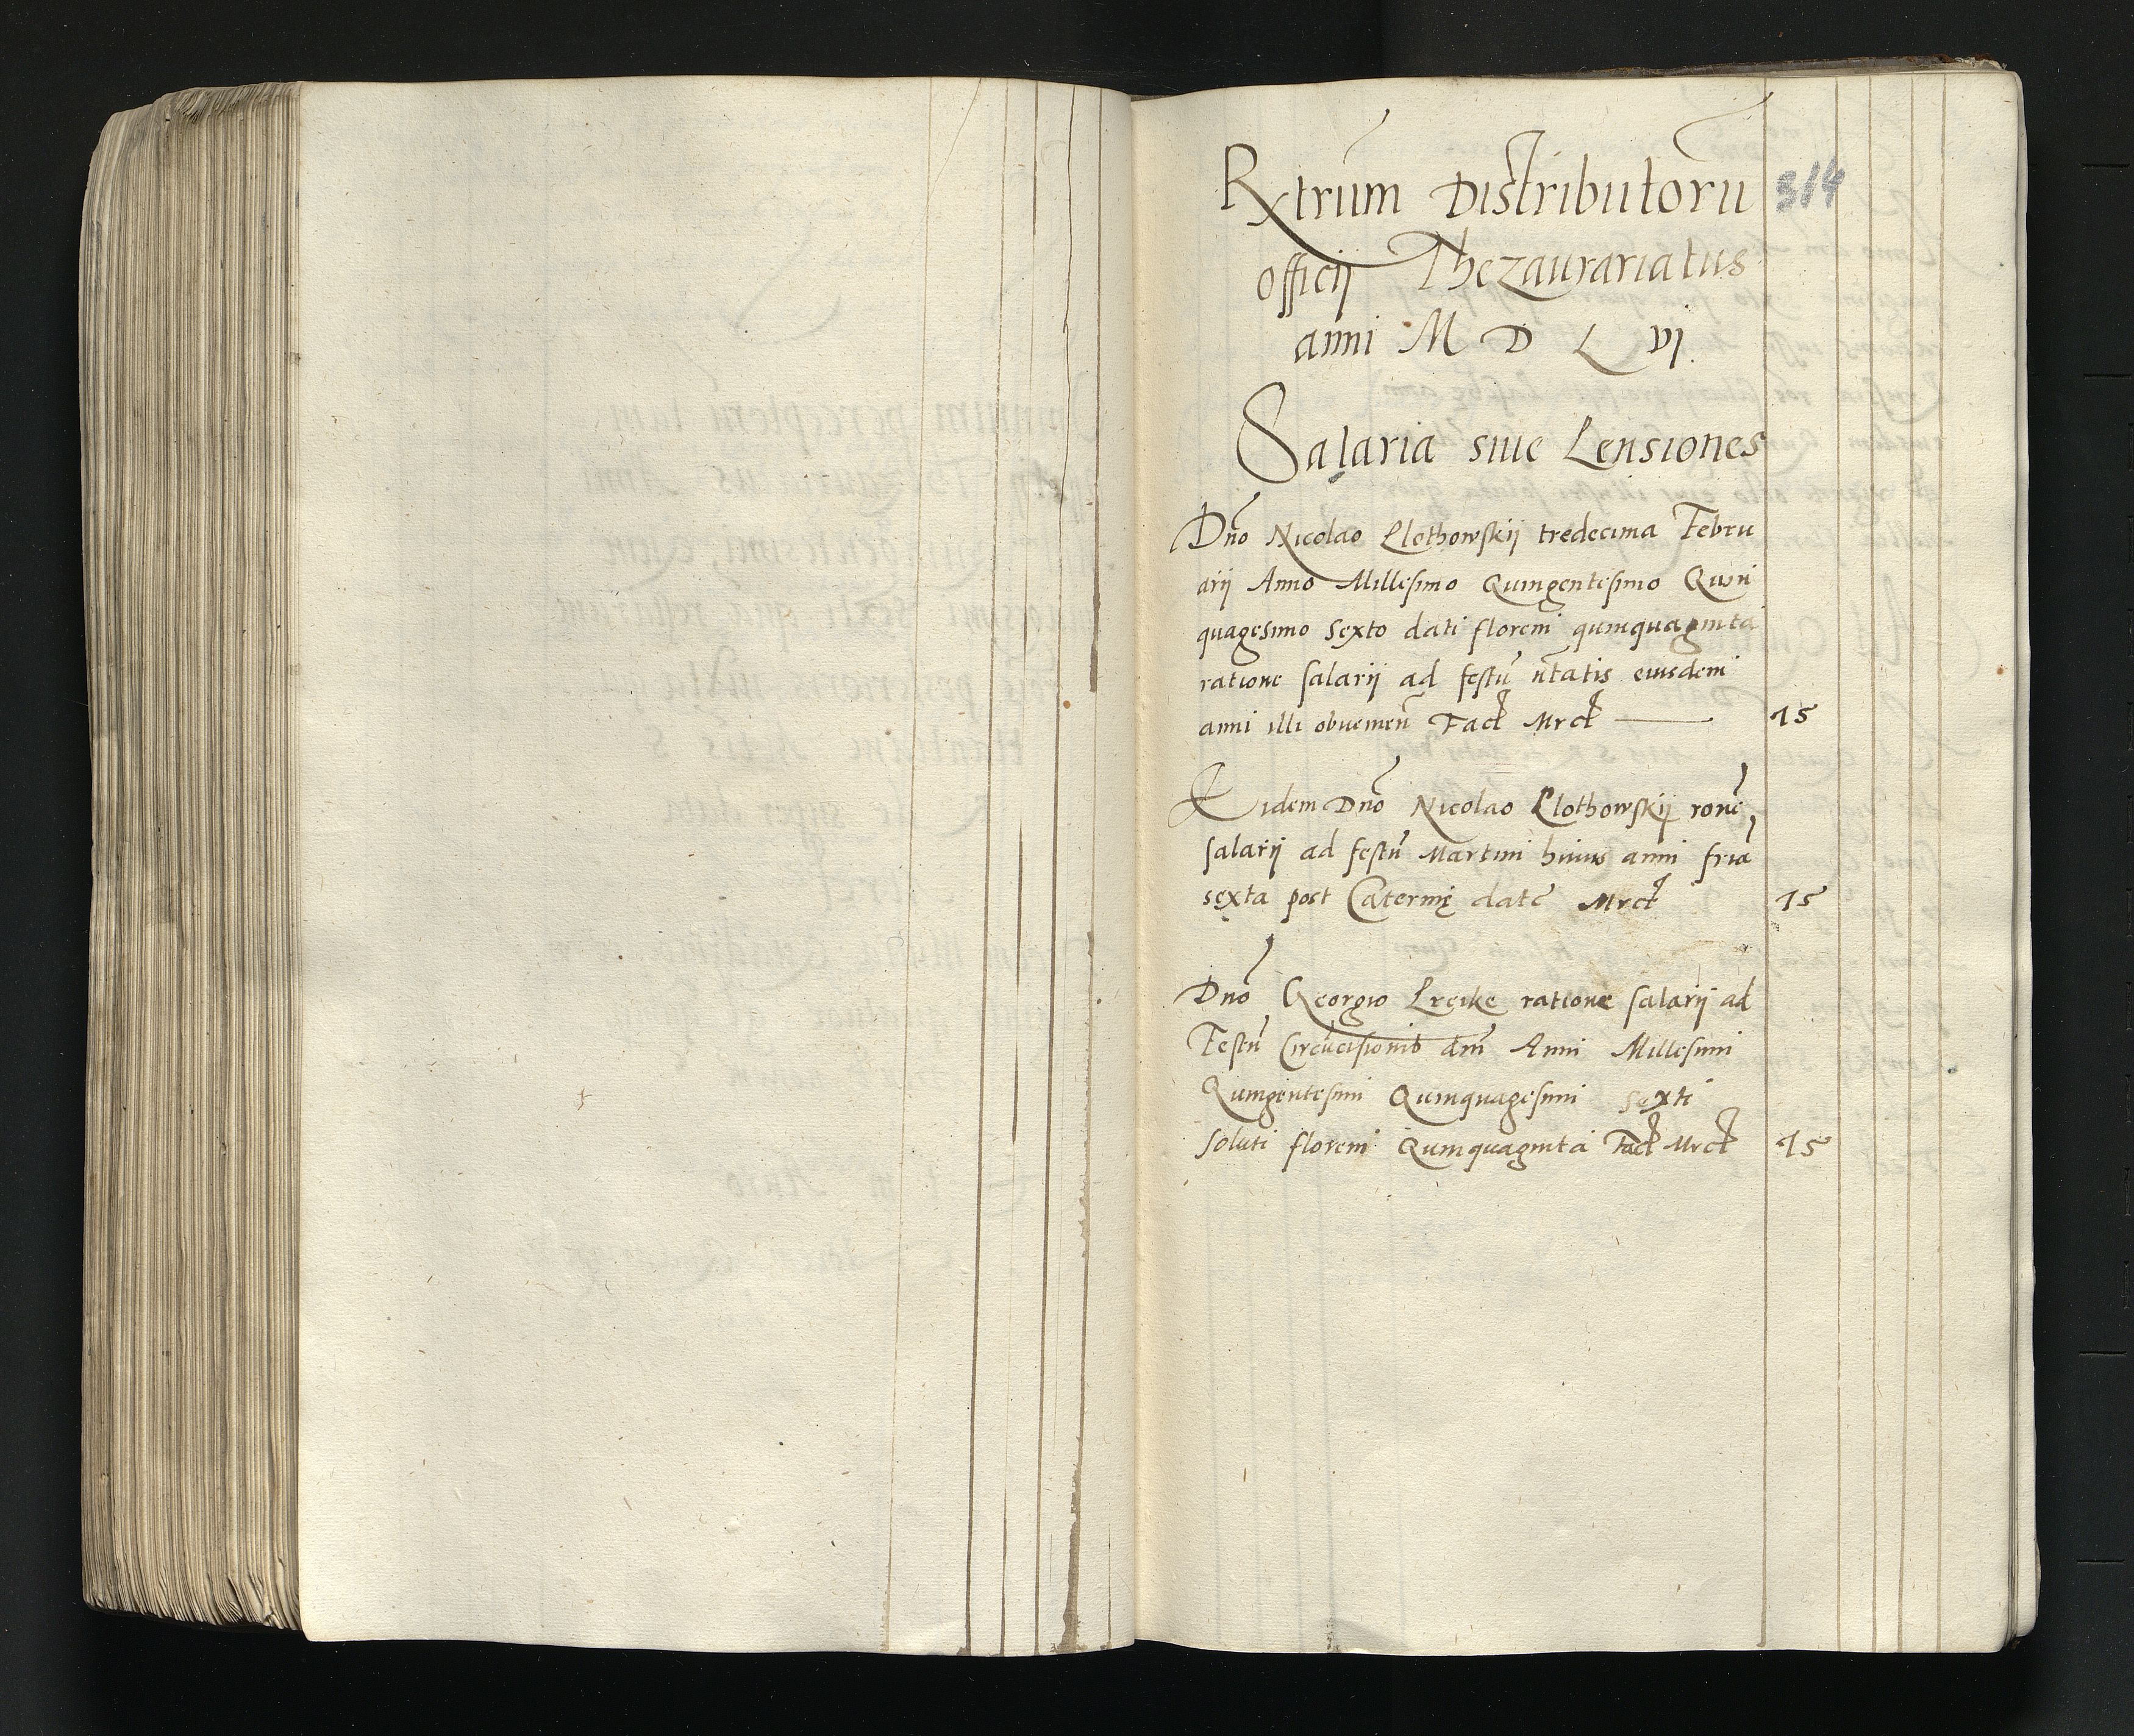 Rxtrum Distributoru 314
officij Thezaurariatus
anni M D L vj
Salaria siue Pensiones
Dno Nicolao Plothowskij tredecima Febru
arij Anno Millesimo Quingentesimo Quin
quagesimo Sexto dati floreni quinquaginta
ratione salarij ad festu ntatis eiusdem
anni illi obuemen Fact Mrct 15
Eidem Dno Nicolao Plothowskij rone
salarij ad festu Martini huius anni fria
sexta post Caterinę date Mrct 15
Dno Georgio Preike ratione salarij ad
Festu Circucisionis dni Anni Millesimi
Quingentesimi Quinquagesimi Sexti
soluti floreni Quinquaginta Fact Mrct 15